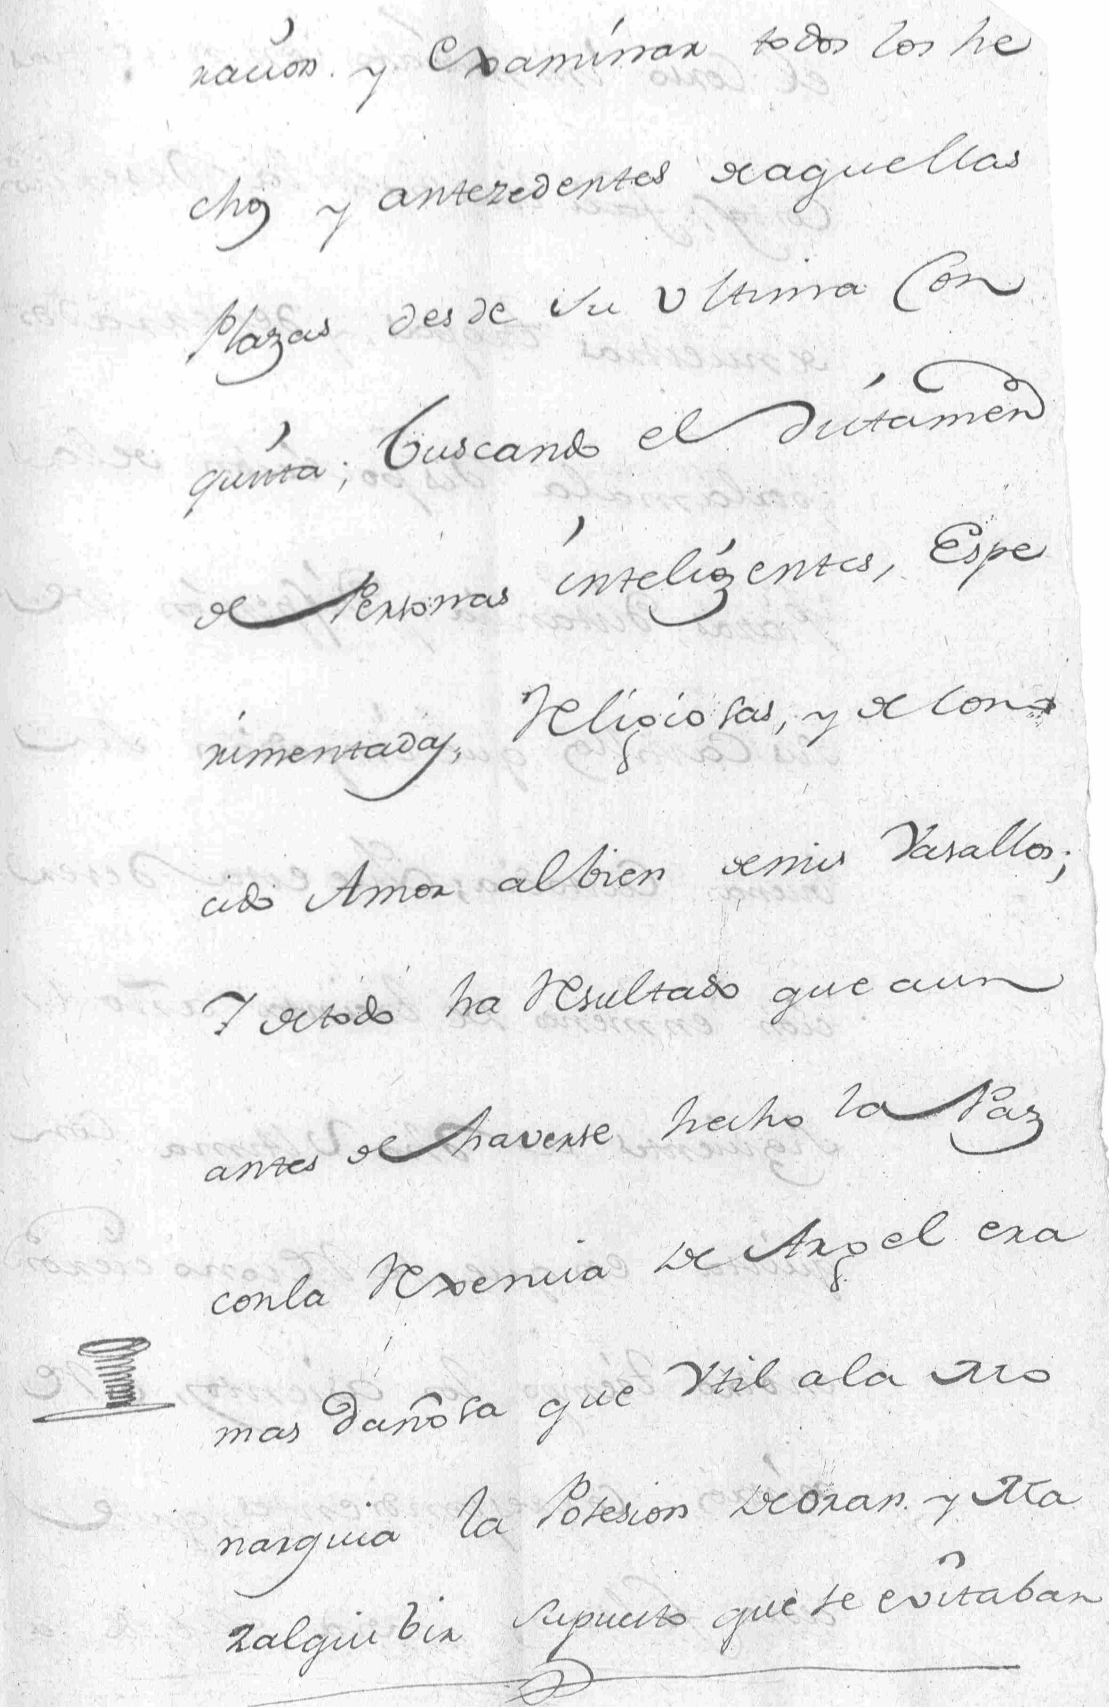 racion. y Examinar todos los he
chos y antezedentes de aquellas
Plazas desde su ultima Con
quista; buscando el Dictamen
de Personas inteligentes, Espe
rimentadas, Religiosas, y de Cono
cido Amor al bien de mis Vasallos;
Y de todo ha Resultado que aun
antes de haverse hecho la Paz
con la Rexencia de Argel era
mas Dañosa que Vtil a la Mo
narquia la Posesion de Oran. y Ma
zalquibir supuesto que se evitaban